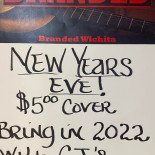 BRANDED
Branded Wichita
NEW YEARS
EVE!
$5.00 COVER
BRING IN 2022
WITH CJ'S